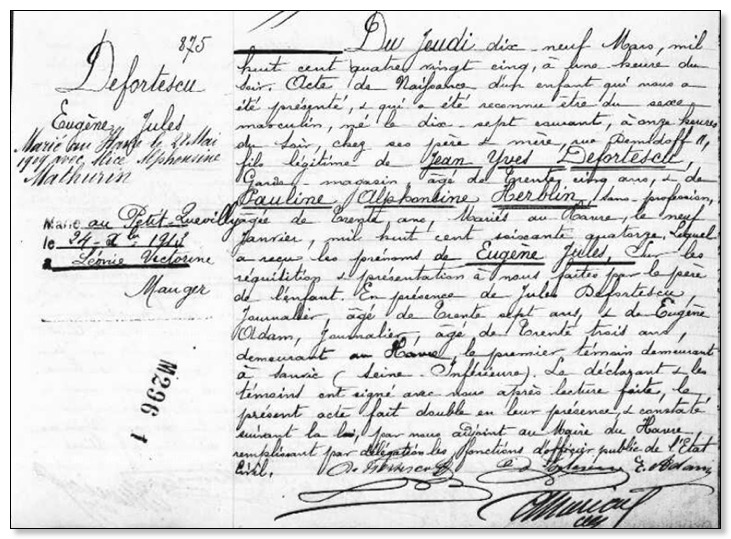 875
Defortescu
Eugène Jules
Marié au Havre le 28 Mai
1909 avec Alice Alphonsine
Mathurin
Marié au Petit-Quevilly
le 24
à Léonie Victorine
Mauger
M296 1
Du Jeudi dix-neuf Mars, mil
huit cent quatre vingt cinq, à une heure du
soir. Acte de Naissance d'un enfant qui nous a
été présenté, & qui a été reconnu être du sexe
masculin, né le dix-sept courant, à onze heures
du soir, chez ses père & mère, rue Demidoff 11,
fils légitime de Jean Yves Defortescu,
Garde-magasin âgé de trente cinq ans, & de
Pauline Alphonsine Herblin, sans profession,
âgée de trente ans, Mariés au Havre, le neuf
Janvier, mil huit cent soixante quatorze. Lequel
a reçu les prénoms de Eugène Jules, Sur les
réquisition & présentation à nous faites par le père
de l'enfant. En présence de Jules Defortescu,
Journalier, âgé de trente sept ans, & de Eugène
Adam, Journalier, âgé de trente trois ans,
demeurant au Havre, le premier témoin demeurant
à Sanvic (Seine Inférieure). Le déclarant & les
témoins ont signé avec nous après lecture faite, le
présent acte fait double en leur présence, & constaté
suivant la loi, par nous adjoint au Maire du Havre,
remplissant par délégation les fonctions d'officier public de l'Etat
Civil.
E. Adam